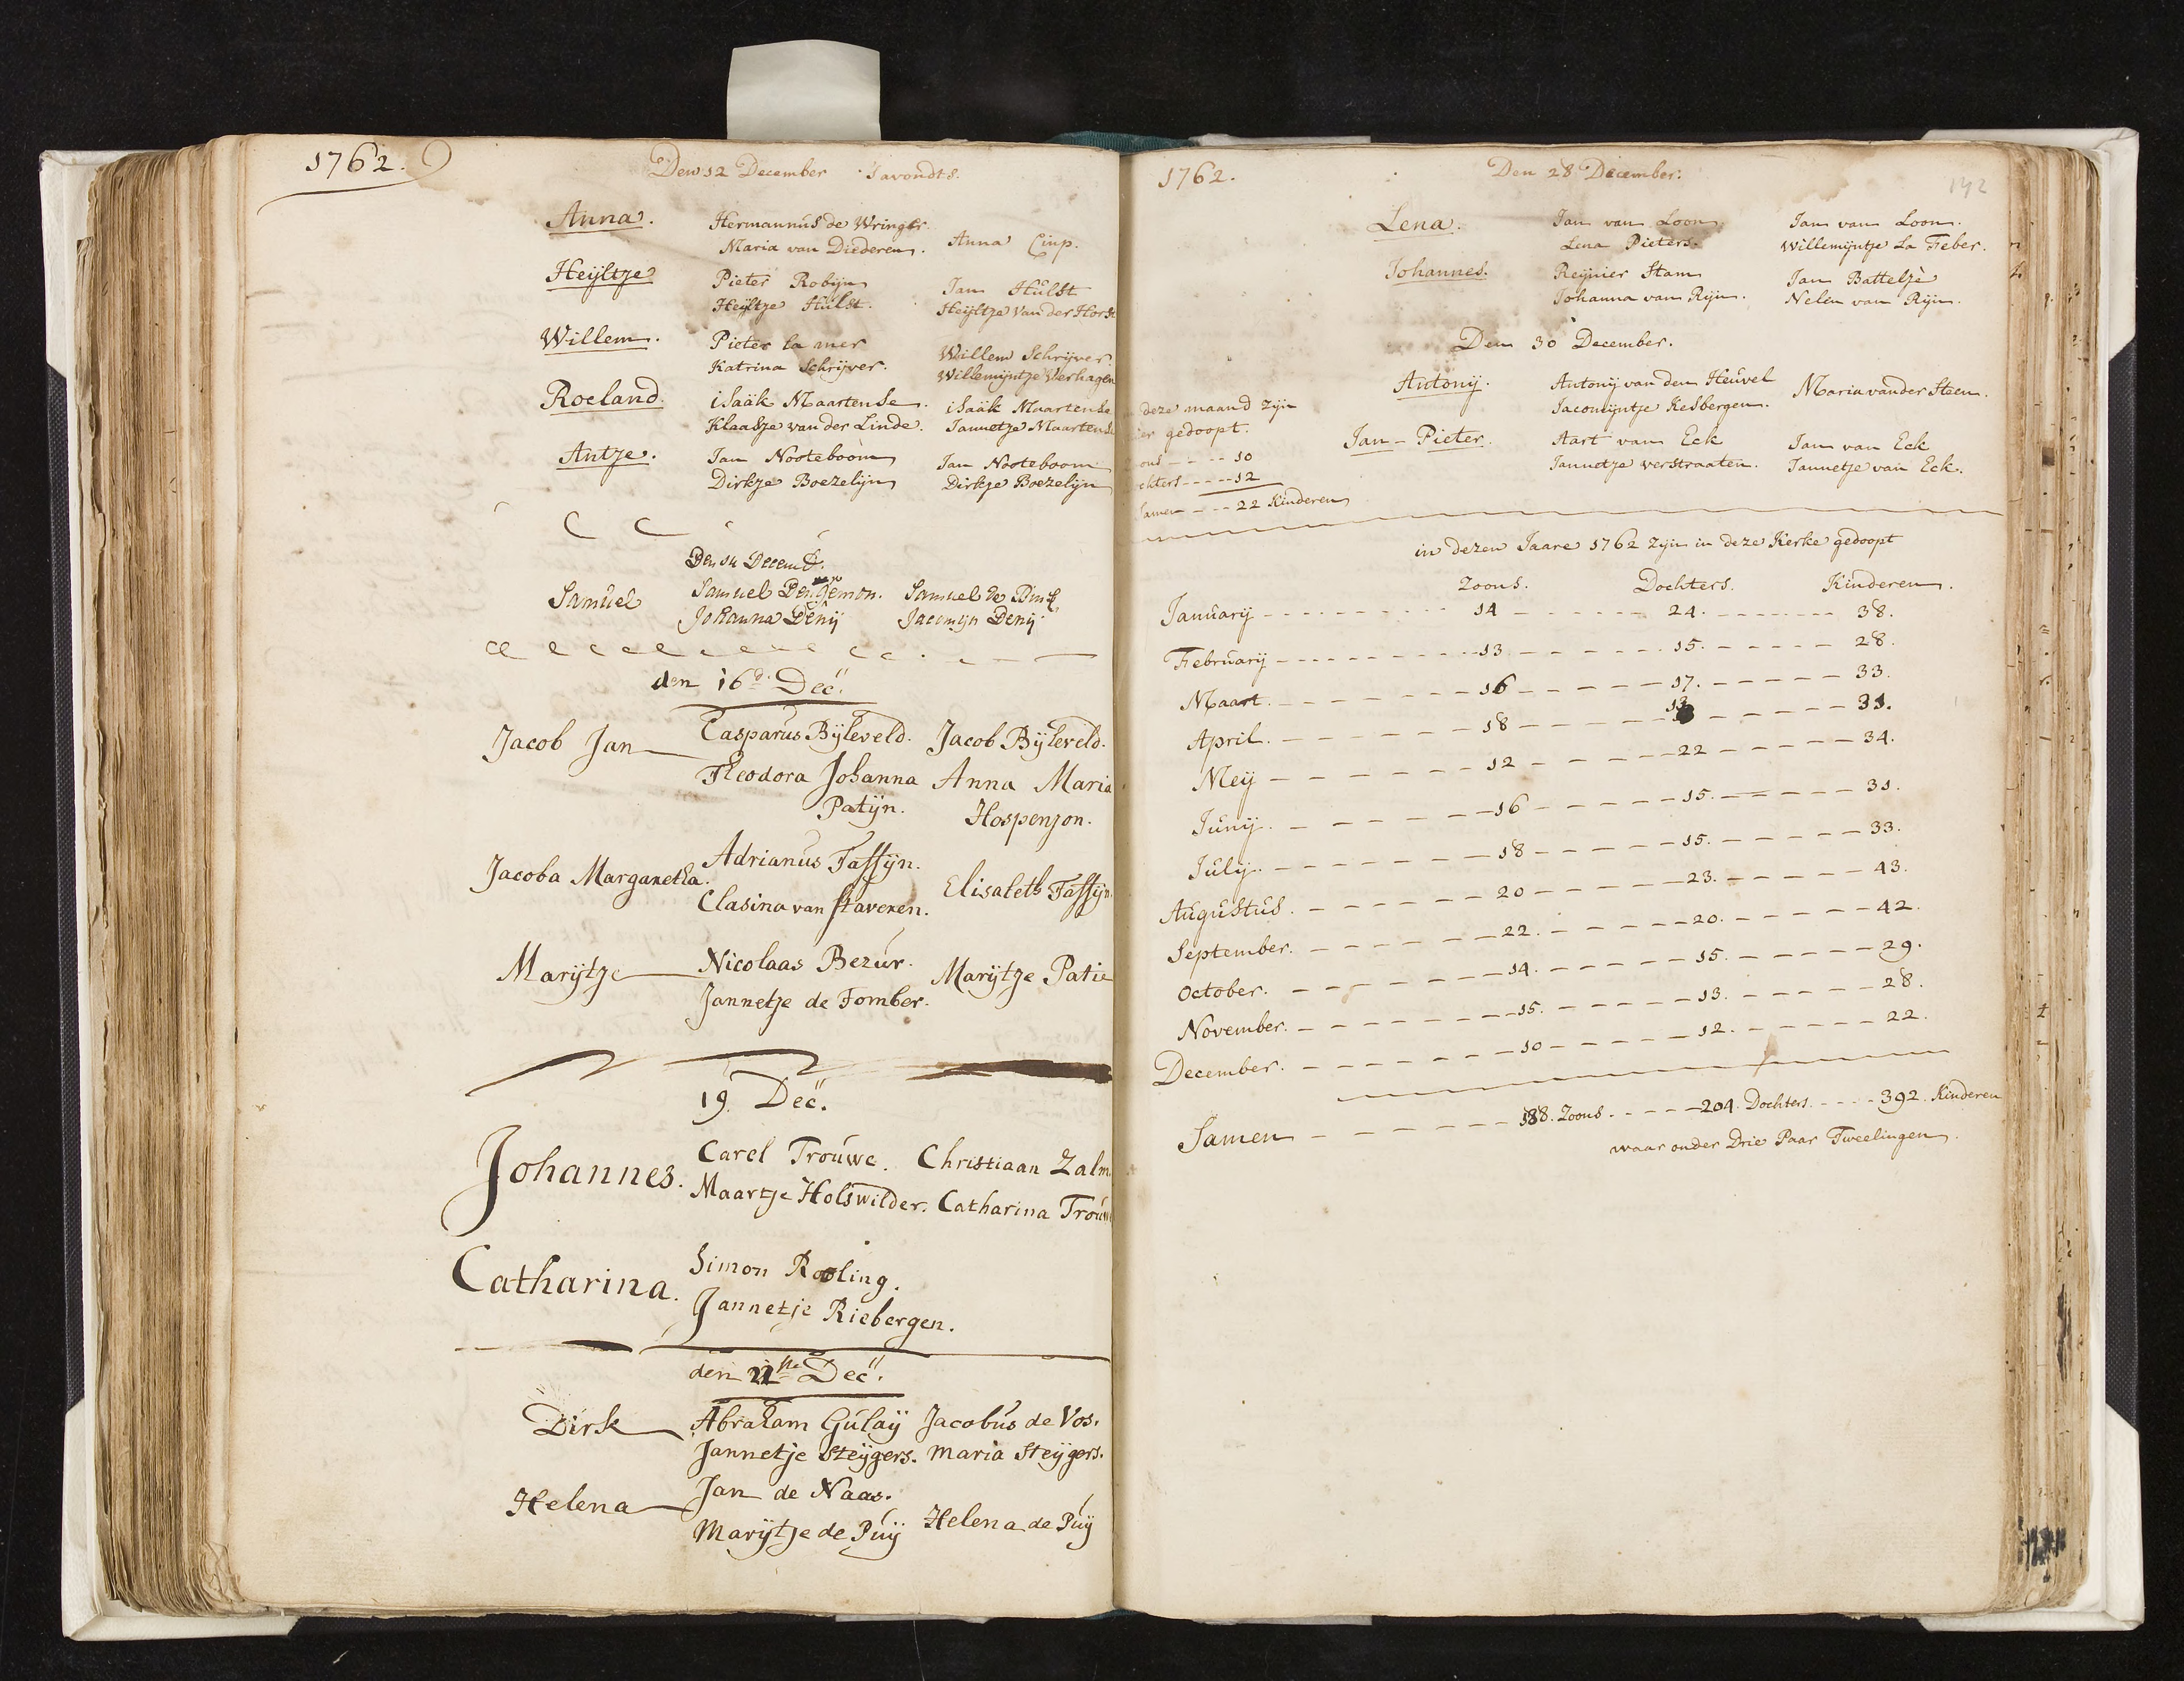 1762.
Den 12 December 'Savondts.
Anna. Hermannus de Wringer.
Maria van Diederen. Anna
Heyltje Pieter Robijn Jan Hulst
Heyltje Hulst. Heyltje van der Horst
Willem. Pieter la mer Willem Schrijver
Katrina Schrijver. Willemijntje Verhagen
Roeland. iSaäk Maartense. iSaäk Maartense
Klaasje van der Linde. Jannetje Maartense
Antje. Jan Nooteboom Jan Nooteboom
Dirkje Boezelijn Dirkje Boezelijn
Den 14 Decemb.
Samuel Samuel Samuel de
Johanna Denij Jacomijn Denij
den 16d. Dec.
Jacob Jan Casparus Bijleveld. Jacob Bijleveld.
Theodora Johanna Anna Maria
Patijn. Hospenjon.
Jacoba Margaretha. Adrianus Tassijn.
Clasina van Staveren. Elisabeth Tassijn.
Marijtje Nicolaas Bezur. Marijtje Patie
Jannetje de Fomber.
19. Dec.
Johannes. Carel Trouwe. Christiaan Zalm
Maartje Holswilder. Catharina Trouw
Catharina. Simon Rooling.
Jannetje Riebergen.
den ste Dec.
Dirk Abraham Gulaij Jacobus de Vos.
Jannetje Steijgers. Maria Steijgers.
Helena Jan de Naas.
Marijtje de Puij Helena de Puij
1762. Den 28 December. 142
Lena. Jan van Loon. Jan van Loon.
Lena Pieters. Willemijntje La Feber.
Johannes. Reijnier Stam Jan Battelje
Johanna van Rijn. Nelen van Rijn.
Den 30 December.
Antonij. Antonij van den Heuvel Maria vander Steen.
Jacomijntje Kesbergen.
Jan-Pieter. Aart van Eck Jan van Eck
Jannetje verstraaten. Jannetje van Eck.
deze maand zijn
gedoopt.
10
12
Samen 22 Kinderen
in dezen Jaare 1762 zijn in deze Kerke gedoopt
Zoons. Dochters. Kinderen.
Januarij 14 24. 38.
Februarij 13 15. 28.
Maart. 16 17. 33.
April. 18 13 31.
Meij 12 22 34.
Junij. 16 15. 31.
Julij. 18 15. 33.
Augustus. 20 23. 43.
September. 22. 20. 42.
October. 14. 15. 29.
November. 15. 13. 28.
December. 10 12. 22.
Samen 188. Zoons. 204. Dochters. 392. Kinderen
waar onder Drie Paar Tweelingen.